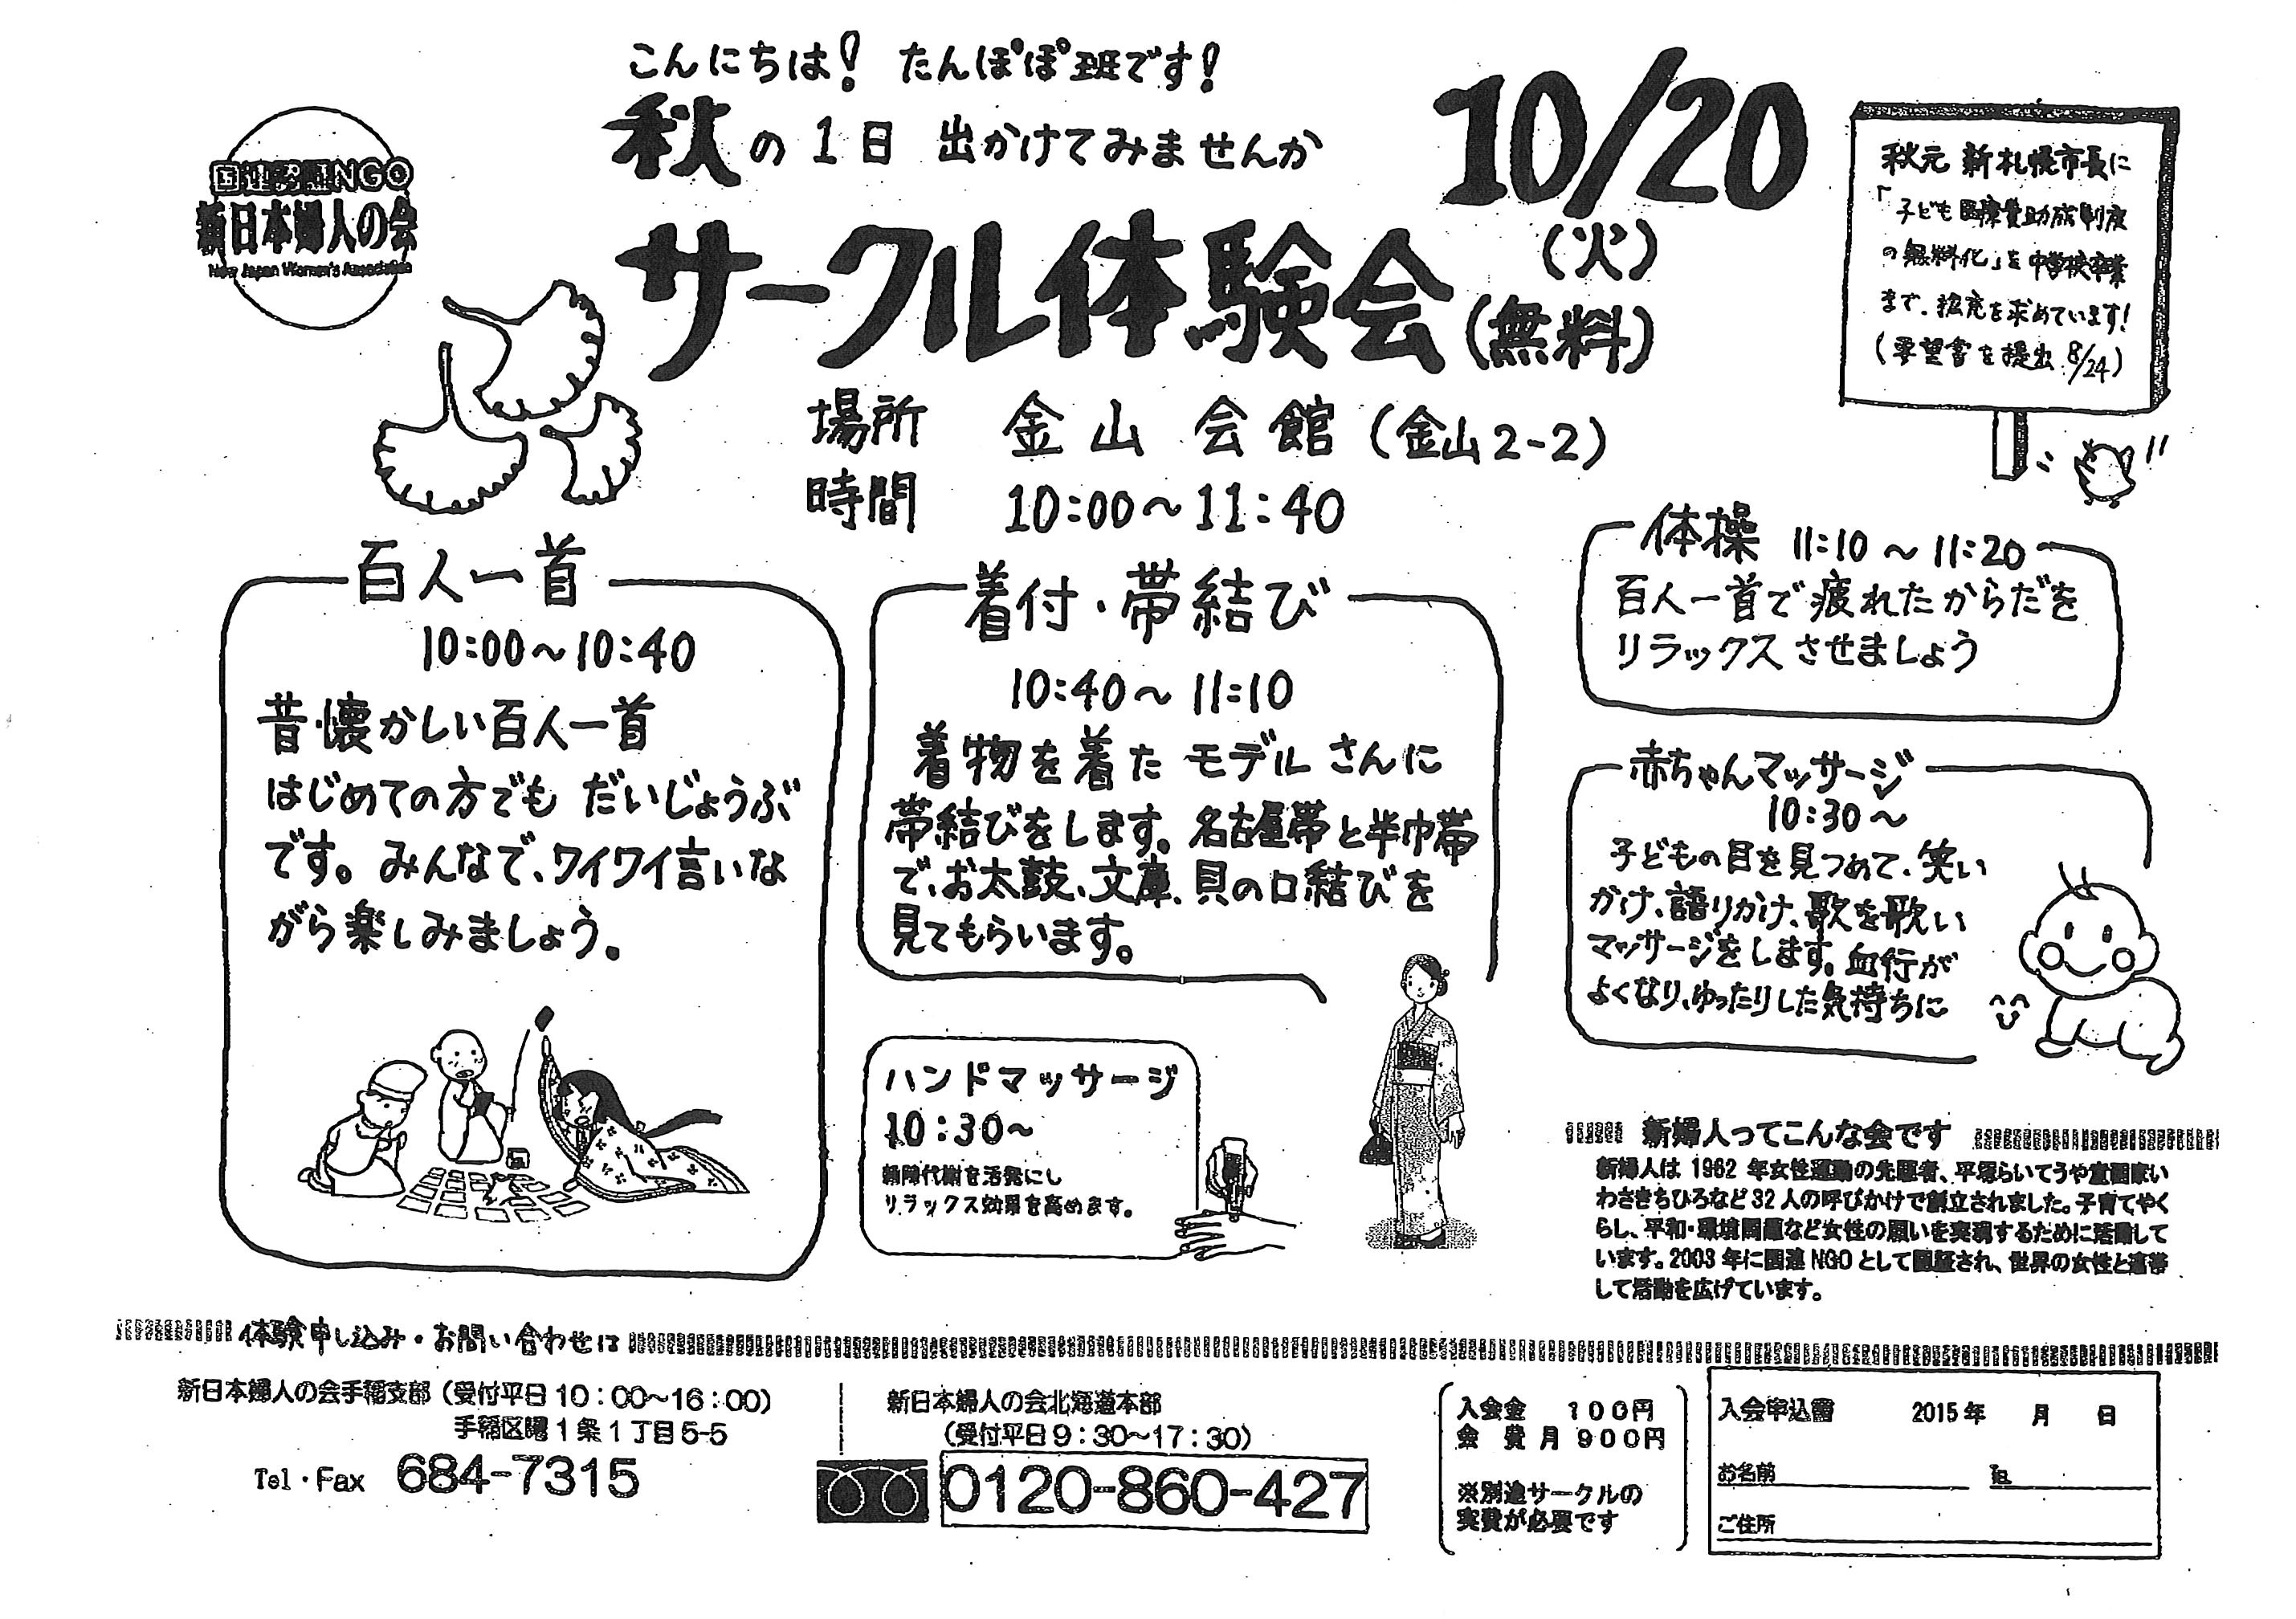 こんにちは! たんぽぽ班です!
秋の1日 出かけてみませんか
10/20
(火)
サークル体験会(無料)
国連認証NGO
新日本婦人の会
New Japan Women's Association
秋元 新札幌市長に
「子ども医療費助成制度
の無料化」を中学校卒業
まで、拡充を求めています!
(要望書を提出 8/24)
場所 金山会館(金山2-2)
時間 10:00〜11:40
百人一首
10:00〜10:40
昔懐かしい百人一首
はじめての方でも だいじょうぶ
です。みんなで、ワイワイ言いな
がら楽しみましょう。
着付・帯結び
10:40〜11:10
着物を着た モデルさんに
帯結びをします。名古屋帯と半巾帯
で、お太鼓、文庫、貝の口結びを
見てもらいます。
体操 11:10〜11:20
百人一首で疲れたからだを
リラックスさせましょう
赤ちゃんマッサージ
10:30〜
子どもの目を見つめて、笑い
がけ、語りかけ、歌を歌い
マッサージをします。血行が
よくなり、ゆったりした気持ちに
ハンドマッサージ
10:30〜
新陳代謝を活発にし
リラックス効果を高めます。
新婦人ってこんな会です
新婦人は1962年女性運動の先駆者、平塚らいてうや童画家い
わさきちひろなど32人の呼びかけで創立されました。子育てやく
らし、平和・環境問題など女性の願いを実現するために活動して
います。2003年に国連NGOとして認証され、世界の女性と連帯
して活動を広げています。
体験申し込み・お問い合わせは
新日本婦人の会手稲支部(受付平日10:00〜16:00)
手稲区曙1条1丁目5-5
Tel・Fax 684-7315
新日本婦人の会北海道本部
(受付平日9:30〜17:30)
0120-860-427
入会金 100円
会 費 月 900円
※別途サークルの
実費が必要です
入会申込書 2015年 月 日
お名前 ℡
ご住所